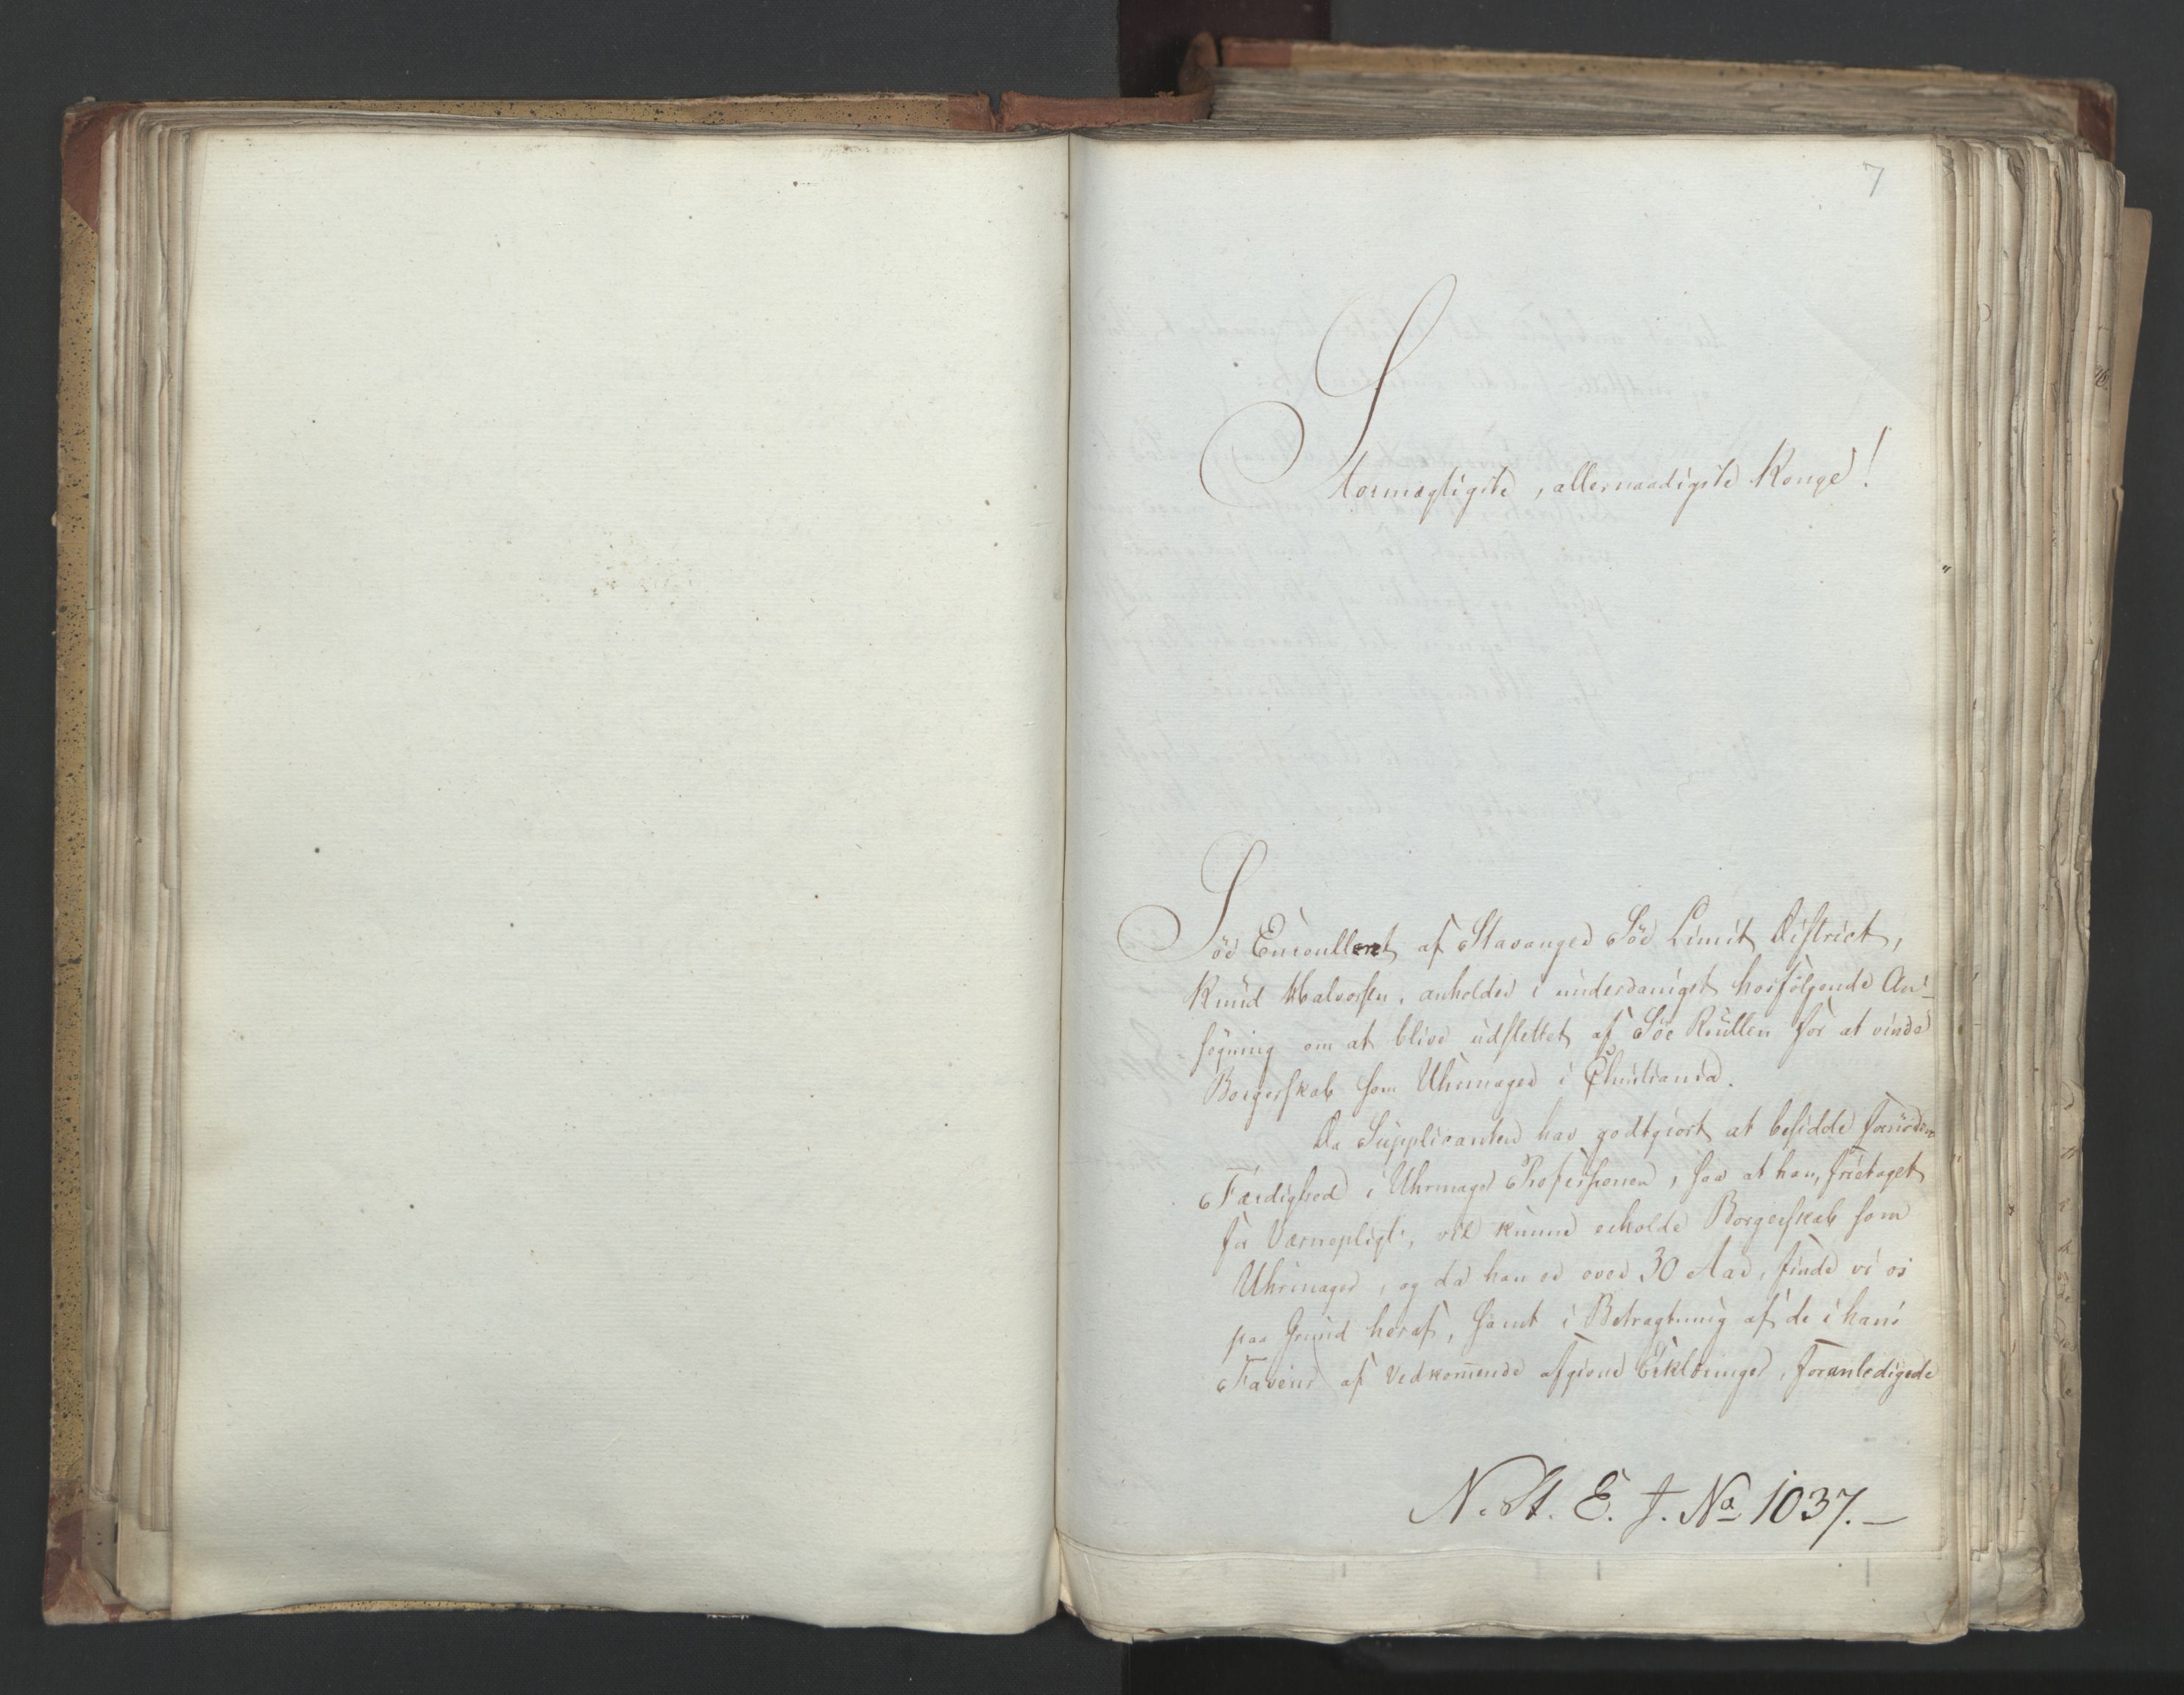 7
Stormægtigste, allernaadigste Konge!
Söe Enroulleret af Stavanger Söe Limit District,
Knud Halvorsen, anholder i underdanigst hosfölgende An-
sögning om at blive udslettet af Söe Rullen for at vinde
Borgerskab som Uhrmager i Christiania.
Da Supplicanten har godtgiort at besidde fornöden
Færdighed i Uhrmager Professionen, saa at han, frietaget
for Værnepligt, vil kunne erholde Borgerskab som
Uhrmager, og da han er over 30 Aar, finde vi os
paa Grund heraf, samt i Betragtning af de i hans
Faveur af Vedkommende afgivne Erklæringer, foranledigede
N. St. E. J. No 1037.-